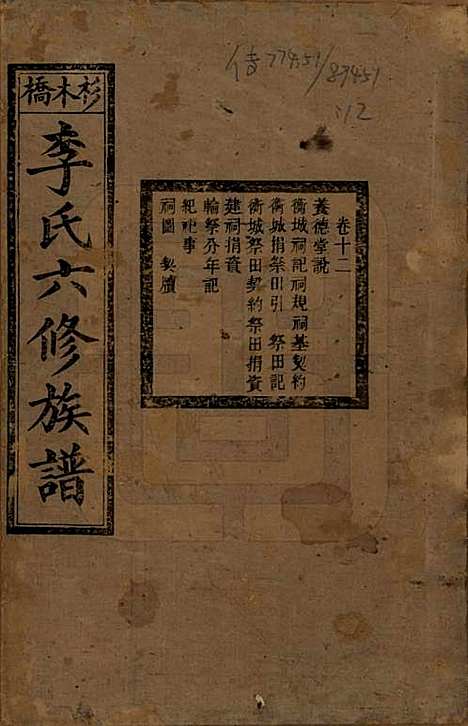 杉木橋
李氏六修族譜
傳77451/87451
112
卷十二
養德堂說
衡城祠記祠規祠基契約
衡城捐祭田引 祭田記
衡城祭田契約祭田捐資
建祠捐資
輪祭分年記
紀祀事
祠圖 契牘